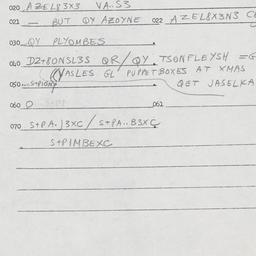 020 AZEL83X3 VA.S3
021 — BUT QY AZOYNE 022 AZEL8X3N3
030 QY PLYOMBES
040 DZ+8ONSL3S QR/QY TSONFLEYSH =G
VASLES GL PUPPETBOXES AT XMAS
050 GET JASELKA
060 D 061
070 S+PA.J3XC/S+PA..B3XC
S+PIMBEXC